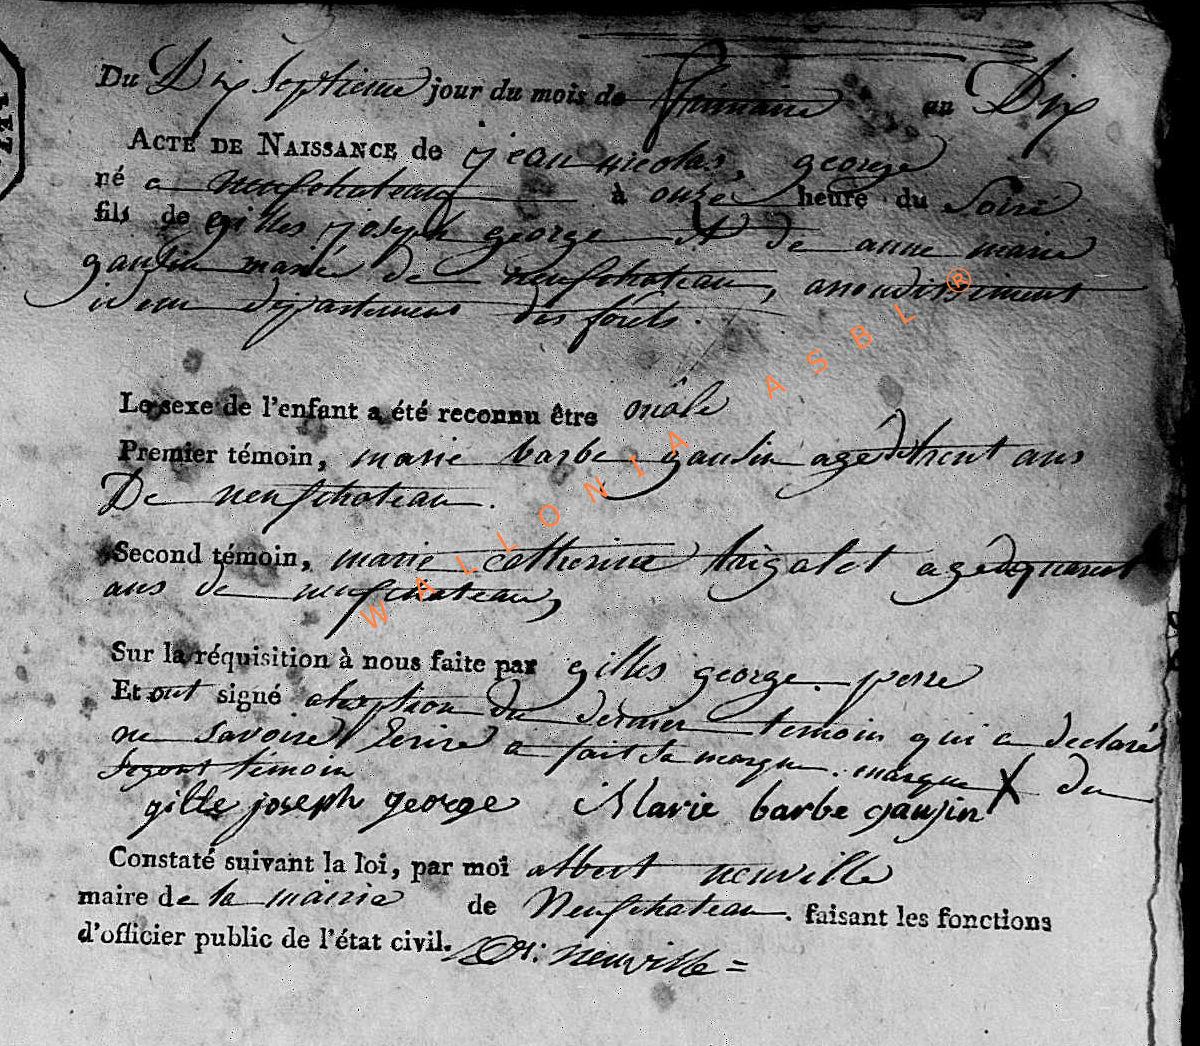 Du Dix Septieme jour du mois de frimaire an Dix
ACTE DE NAISSANCE de jean nicolas, george
né a neufchateau à onze heure du Soire
fils de gilles joseph george Et de anne marie
gausin marié de neufchateau, arrondissiment
idem departement des forêts.
Le sexe de l'enfant a été reconnu être mâle
Premier témoin, marie barbe gausin agé de trent ans
De neufchateau.
Second témoin, marie catherine trigalet agé de quarent
ans de neufchateau,
Sur la réquisition à nous faite par gilles george. perre
Et ont signé a du dernier temoin qui a declaré
ne savoire Ecrire a fait sa marque. marque X du
segont témoin
gille joseph george Marie barbe gausin
Constaté suivant la loi, par moi albert neuville
maire de la mairie de Neufchateau. faisant les fonctions
d'officier public de l'état civil. neuville =
WALLONIA ASBL ®